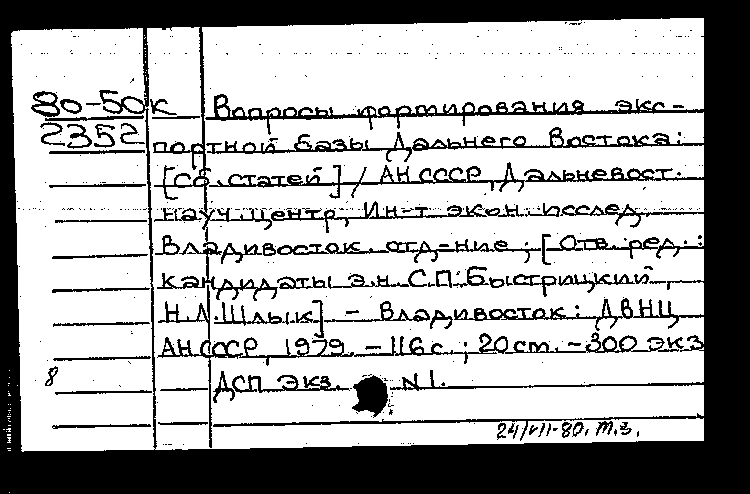 80-50к Вопросы формирования экс-
2352 портной базы Дальнего Востока:
[Сб. статей] / АН СССР, Дальневост.
науч. центр, Ин-т экон. исслед.
Владивосток. отд-ние ; [Отв. ред.:
кандидаты э.н. С.П. Быстрицкий,
Н.Л. Шлык] - Владивосток: ДВНЦ
АН СССР, 1979. - 116 с. ; 20 см. - 300 экз
8 ДСП Экз. N 1.
24/VII-80. т.з.